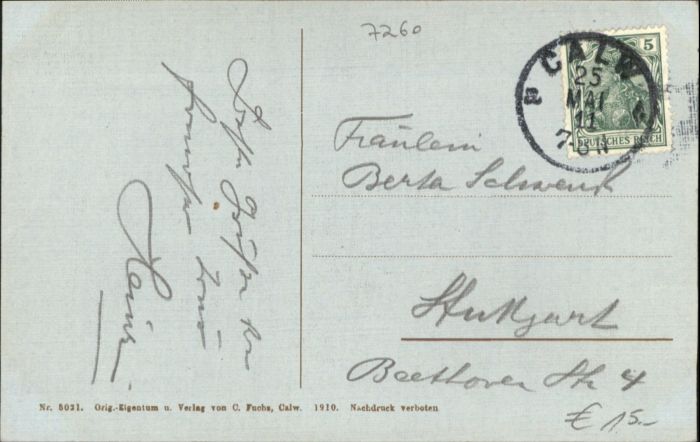 7260
CALW
25
MAI
11
7-8 N
5
DEUTSCHES REICH
Fräulein
Berta Schwenk
Stuttgart
Beethoven Str 4
€ 15.-
Grüße
Heiner
Nr. 5031. Orig.-Eigentum u. Verlag von C. Fuchs, Calw. 1910. Nachdruck verboten